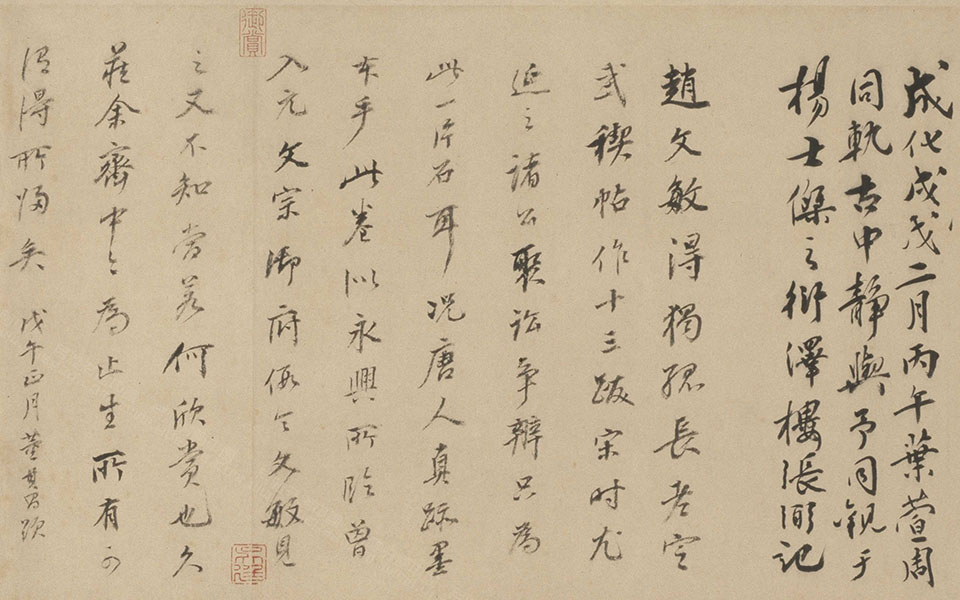 成化戊戌二月丙午葉萱周
同軌古中靜與予同觀于
楊士傑之衍澤樓張弼記
趙文敏得獨孤長老定
武禊帖作十三跋宋時尤
延之諸公聚訟爭辨只為
此一片石耳況唐人真跡墨
本乎此卷似永興所臨曾
入元文宗御府假令文敏見
之又不知當若何欣賞也久
藏余齋中今為止生所有可
謂得所歸矣 戊午正月董其昌跋
御賞